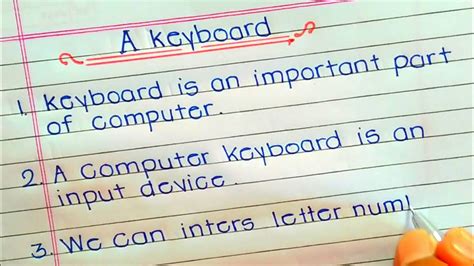 A Keyboard
1. Keyboard is an important part
of computer.
2. A computer keyboard is an
input device.
3. We can inters letter num